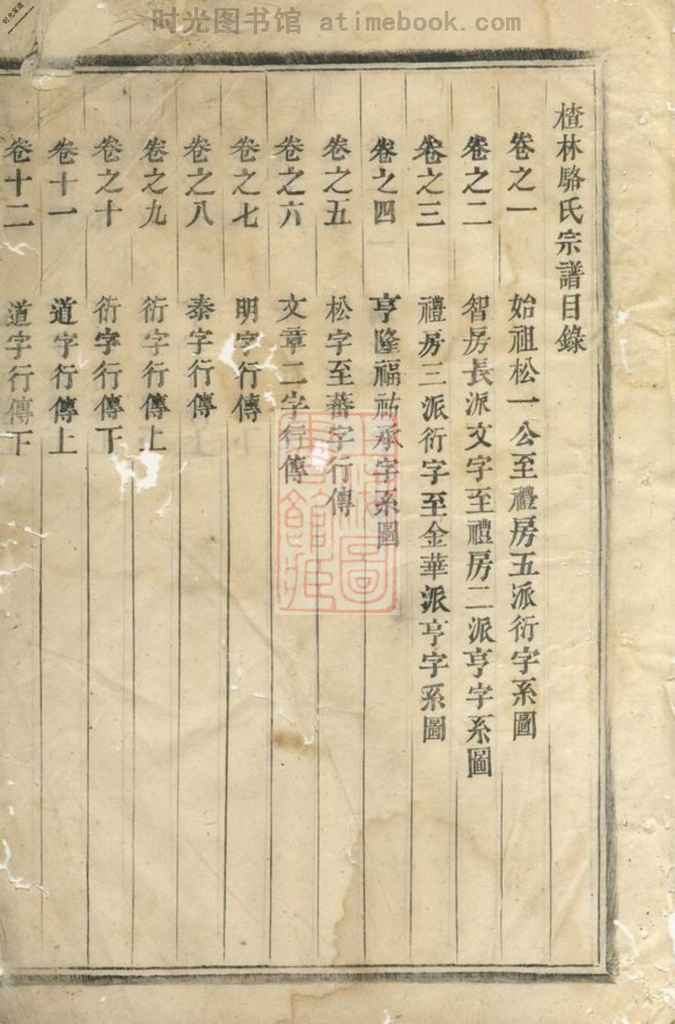 时光图书馆 atimebook.com
楂林駱氏宗譜目錄
卷之一 始祖松一公至禮房五派衍字系圖
卷之二 智房長派文字至禮房二派亨字系圖
卷之三 禮房三派衍字至金華派亨字系圖
卷之四 亨隆福祐承字系圖
卷之五 松字至蕃字行傳
卷之六 文章二字行傳
卷之七 明字行傳
卷之八 泰字行傳
卷之九 衍字行傳上
卷之十 衍字行傳下
卷十一 道字行傳上
卷十二 道字行傳下